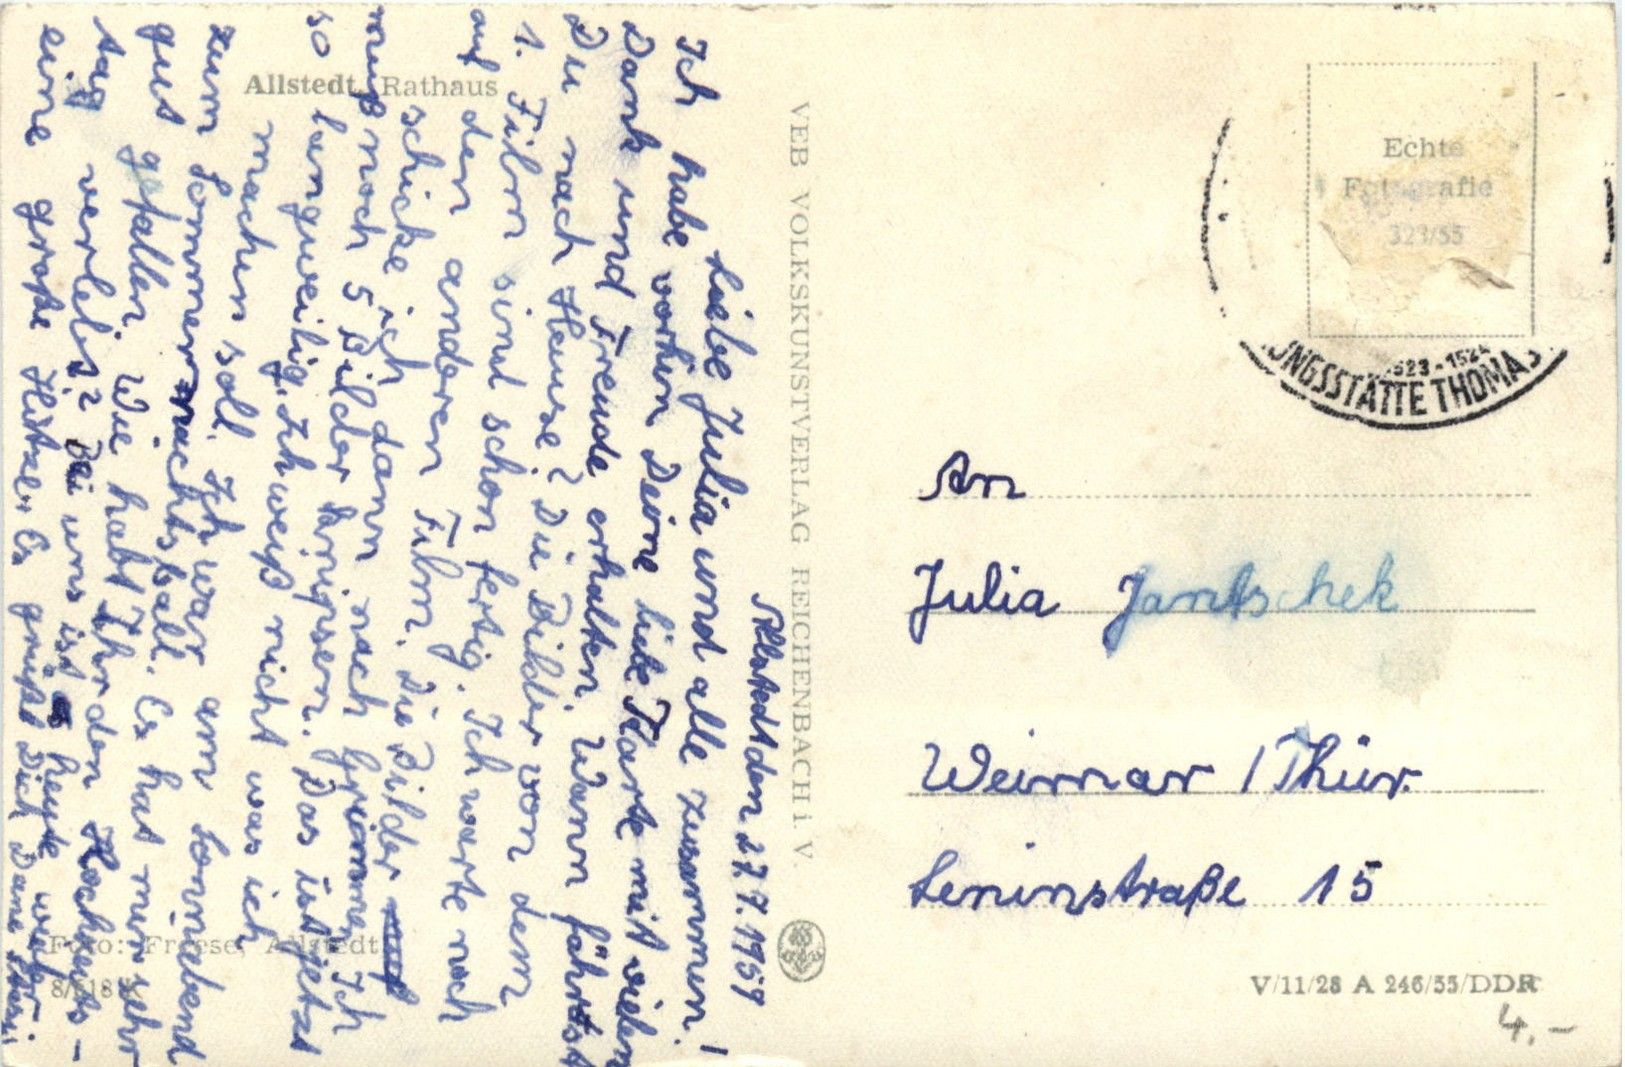 Allstedt, Rathaus
Allstedt den 27.7.1959
Liebe Julia und alle zusammen!
Ich habe vorhin Deine liebe Karte mit vielem
Dank und Freude erhalten. Wann fährst
Du nach Hause? Die Bilder von dem
1. Film sind schon fertig. Ich warte noch
auf den anderen Film. Die Bilder
schicke ich dann nach Grimme. Ich
muß noch 5 Bilder knipsen. Das ist jetzt
so langweilig. Ich weiß nicht was ich
machen soll. Ich war am Sonnabend
zum Sommernachtsball. Es hat mir sehr
gut gefallen. Wie habt Ihr den Hochzeits-
tag verlebt? Bei uns ist heute wieder
eine große Hitze. Es grüßt Dich Deine
Foto: Freese, Allstedt
VEB VOLKSKUNSTVERLAG REICHENBACH i. V.
Echte
Fotografie
323/55
1523-1524
UNGSSTÄTTE THOMAS
An
Julia Jantschek
Weimar / Thür.
Leninstraße 15
V/11/28 A 246/55/DDR
4.-